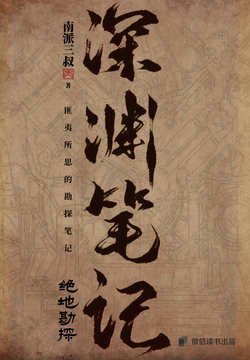 深渊笔记
南派三叔
著
匪夷所思的勘探笔记
绝地勘探
微信读书出品